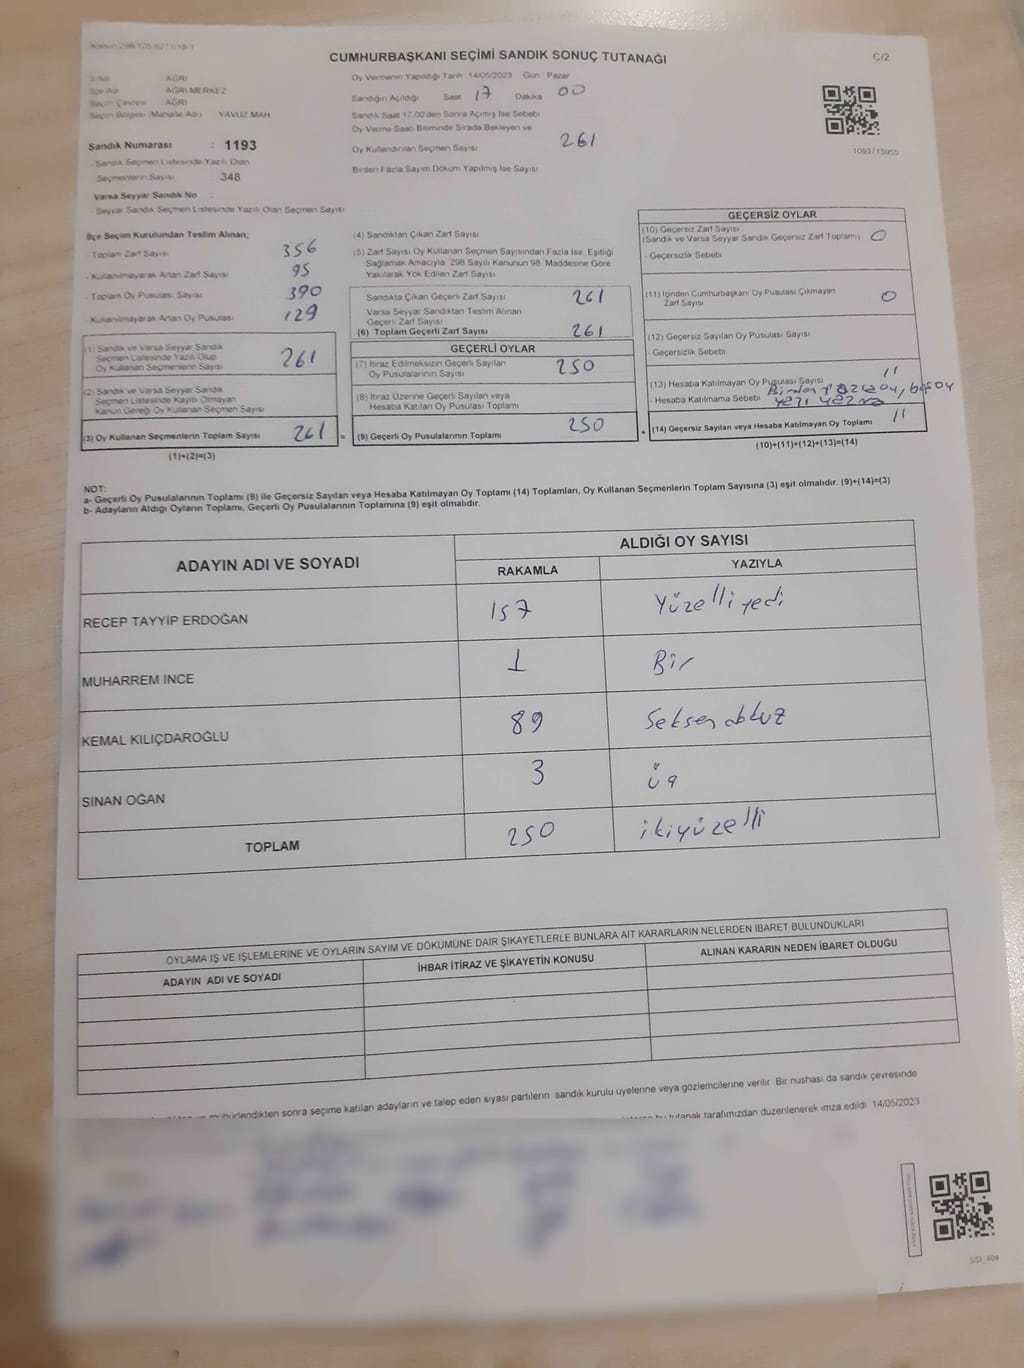 CUMHURBAŞKANI SEÇİMİ SANDIK SONUÇ TUTANAĞI
C/2
İl Adı AĞRI
İlçe Adı AĞRI MERKEZ
Seçim Çevresi AĞRI
Seçim Bölgesi (Mahalle Adı) YAVUZ MAH
Sandık Numarası : 1193
- Sandık Seçmen Listesinde Yazılı Olan
Seçmenlerin Sayısı 348
Varsa Seyyar Sandık No :
- Seyyar Sandık Seçmen Listesinde Yazılı Olan Seçmen Sayısı
Oy Vermenin Yapıldığı Tarih 14/05/2023 Gün Pazar
Sandığın Açıldığı Saat 17 Dakika 00
Sandık Saat 17:00'den Sonra Açımış İse Sebebi
Oy Verme Saati Bitiminde Sırada Bekleyen ve
Oy Kullandırılan Seçmen Sayısı 261
Birden Fazla Sayım Döküm Yapılmış İse Sayısı
1093715955
İlçe Seçim Kurulundan Teslim Alınan;
- Toplam Zarf Sayısı 356
- Kullanılmayarak Artan Zarf Sayısı 95
- Toplam Oy Pusulası Sayısı 390
- Kullanılmayarak Artan Oy Pusulası 129
(1) Sandık ve Varsa Seyyar Sandık
Seçmen Listesinde Yazılı Olup
Oy Kullanan Seçmenlerin Sayısı 261
(2) Sandık ve Varsa Seyyar Sandık
Seçmen Listesinde Kayıtlı Olmayan
Kanun Gereği Oy Kullanan Seçmen Sayısı
(3) Oy Kullanan Seçmenlerin Toplam Sayısı 261 =
(1)+(2)=(3)
(4) Sandıktan Çıkan Zarf Sayısı
(5) Zarf Sayısı Oy Kullanan Seçmen Sayısından Fazla İse, Eşitliği
Sağlamak Amacıyla, 298 Sayılı Kanunun 98. Maddesine Göre
Yakılarak Yok Edilen Zarf Sayısı
Sandıkta Çıkan Geçerli Zarf Sayısı 261
Varsa Seyyar Sandıktan Teslim Alınan
Geçerli Zarf Sayısı
(6) Toplam Geçerli Zarf Sayısı 261
GEÇERLİ OYLAR
(7) İtiraz Edilmeksizin Geçerli Sayılan
Oy Pusulalarının Sayısı 250
(8) İtiraz Üzerine Geçerli Sayılan veya
Hesaba Katılan Oy Pusulası Toplamı
(9) Geçerli Oy Pusulalarının Toplamı 250 +
GEÇERSİZ OYLAR
(10) Geçersiz Zarf Sayısı
(Sandık ve Varsa Seyyar Sandık Geçersiz Zarf Toplamı) 0
- Geçersizlik Sebebi
(11) İçinden Cumhurbaşkanı Oy Pusulası Çıkmayan
Zarf Sayısı 0
(12) Geçersiz Sayılan Oy Pusulası Sayısı
- Geçersizlik Sebebi
(13) Hesaba Katılmayan Oy Pusulası Sayısı 11
- Hesaba Katılmama Sebebi
(14) Geçersiz Sayılan veya Hesaba Katılmayan Oy Toplamı 11
(10)+(11)+(12)+(13)=(14)
NOT:
a- Geçerli Oy Pusulalarının Toplamı (9) ile Geçersiz Sayılan veya Hesaba Katılmayan Oy Toplamı (14) Toplamları, Oy Kullanan Seçmenlerin Toplam Sayısına (3) eşit olmalıdır. (9)+(14)=(3)
b- Adayların Aldığı Oyların Toplamı, Geçerli Oy Pusulalarının Toplamına (9) eşit olmalıdır.
ADAYIN ADI VE SOYADI ALDIĞI OY SAYISI
RAKAMLA YAZIYLA
RECEP TAYYİP ERDOĞAN 157 Yüzelliyedi
MUHARREM İNCE 1 Bir
KEMAL KILIÇDAROĞLU 89 Seksendokuz
SİNAN OĞAN 3 üç
TOPLAM 250 ikiyüzelli
OYLAMA İŞ VE İŞLEMLERİNE VE OYLARIN SAYIM VE DÖKÜMÜNE DAİR ŞİKAYETLERLE BUNLARA AİT KARARLARIN NELERDEN İBARET BULUNDUKLARI
ADAYIN ADI VE SOYADI İHBAR İTİRAZ VE ŞİKAYETİN KONUSU ALINAN KARARIN NEDEN İBARET OLDUĞU
mühürlendikten sonra seçime katılan adayların ve talep eden siyasi partilerin sandık kurulu üyelerine veya gözlemcilerine verilir. Bir nüshası da sandık çevresinde
bu tutanak tarafımızdan düzenlenerek imza edildi. 14/05/2023
SSI_404